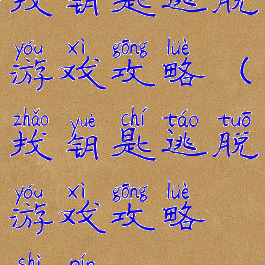 找钥匙逃脱
yóu xì gōng lüè
游戏攻略（
zhǎo yuè chí táo tuō
找钥匙逃脱
yóu xì gōng lüè
游戏攻略
shì pín